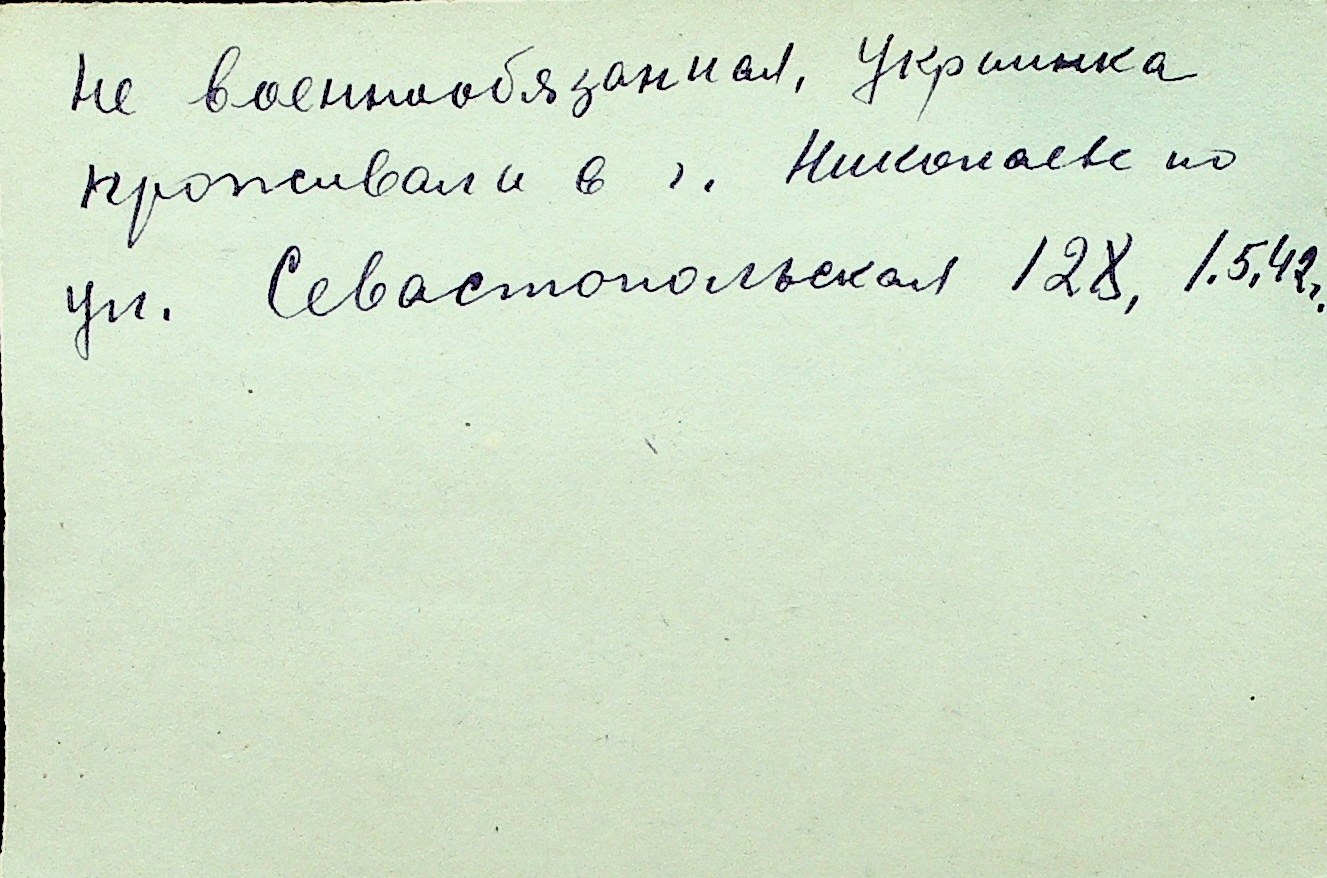 Не военнообязанная, Украинка
проживали в г. Николаеве по
ул. Севастопольская 128, 1.5.42г.